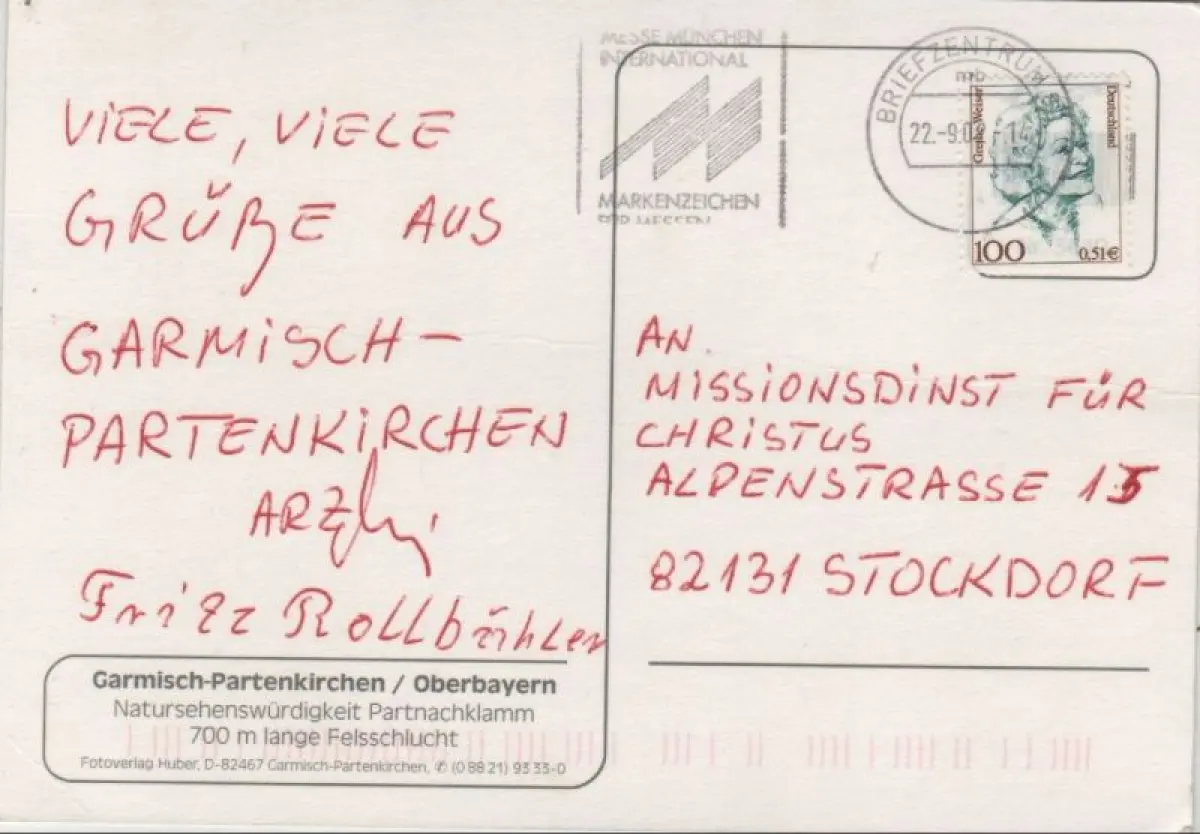 VIELE, VIELE
GRÜßE AUS
GARMISCH-
PARTENKIRCHEN
Fritz Rollbühler
Garmisch-Partenkirchen / Oberbayern
Natursehenswürdigkeit Partnachklamm
700 m lange Felsschlucht
Fotoverlag Huber, D-82467 Garmisch-Partenkirchen, ✆ (0 88 21) 93 33-0
MESSE MÜNCHEN
INTERNATIONAL
MARKENZEICHEN
FÜR MESSEN
BRIEFZENTRUM
mb
22.-9.0
Grethe Weiser
Deutschland
100
0,51€
AN
MISSIONSDINST FÜR
CHRISTUS
ALPENSTRASSE 15
82131 STOCKDORF